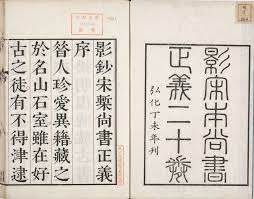 影宋本尚書
正義二十卷
弘化丁未年刊
影鈔宋槧尚書正義
序
昝人珍愛異籍藏之
於名山石室雖在好
古之徒有不得津逮